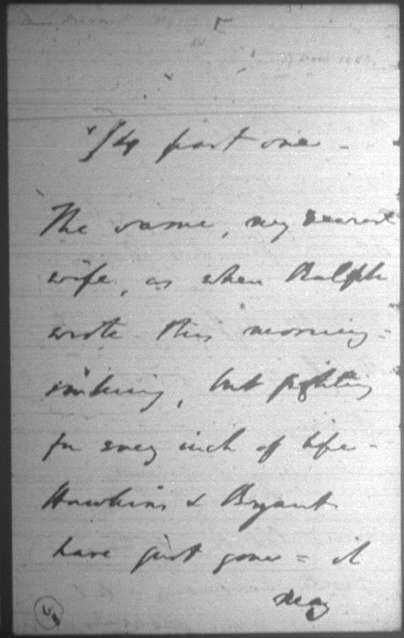 1/4 past one -
The same, my dearest
wife, as when Ralph
wrote this morning -
sinking, but fighting
for every inch of life -
Hawkins & Bryant
have just gone = it
may